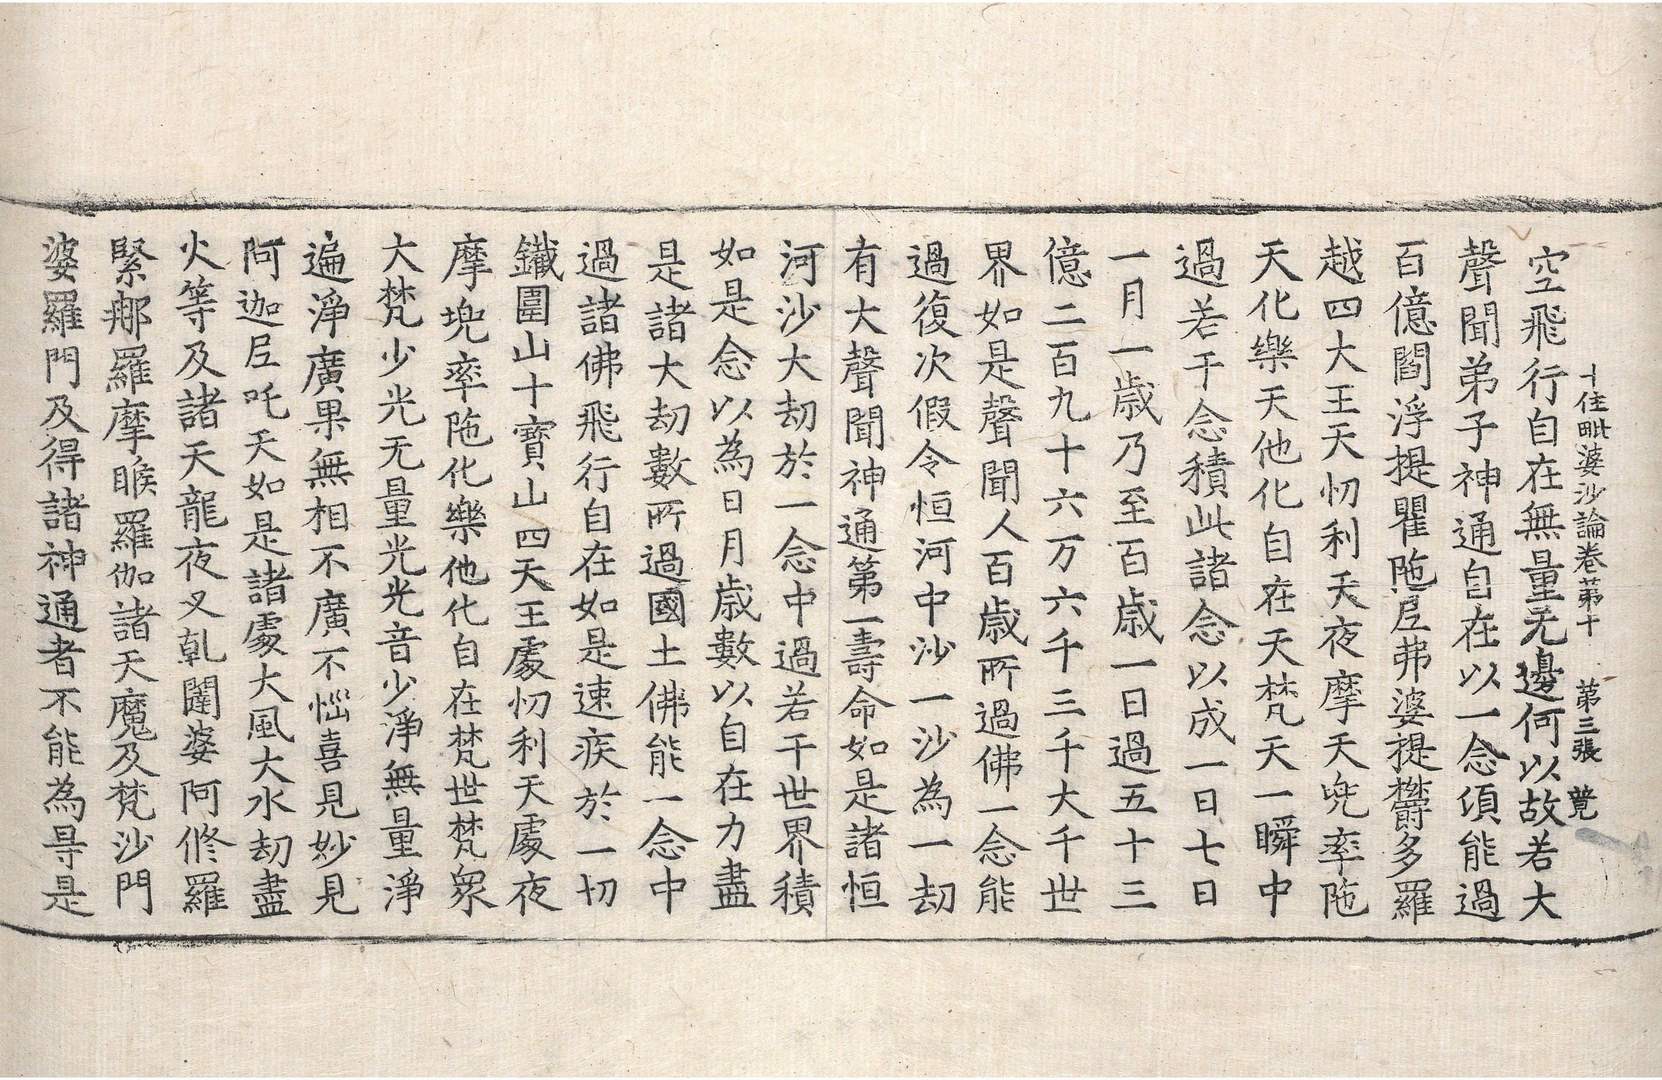 十住毗婆沙論卷第十　第三張　覽
空飛行自在無量无邊何以故若大
聲聞弟子神通自在以一念頃能過
百億閻浮提瞿陁尼弗婆提欝多羅
越四大王天忉利天夜摩天兜率陁
天化樂天他化自在天梵天一瞬中
過若干念積此諸念以成一日七日
一月一歲乃至百歲一日過五十三
億二百九十六万六千三千大千世
界如是聲聞人百歲所過佛一念能
過復次假令恒河中沙一沙為一劫
有大聲聞神通第一壽命如是諸恒
河沙大劫於一念中過若干世界積
如是念以為日月歲數以自在力盡
是諸大劫數所過國土佛能一念中
過諸佛飛行自在如是速疾於一切
鐵圍山十寶山四天王處忉利天處夜
摩兜率陁化樂他化自在梵世梵衆
大梵少光无量光光音少淨無量淨
遍淨廣果無相不廣不惱喜見妙見
阿迦尼吒天如是諸處大風大水劫盡
火等及諸天龍夜叉乹闥婆阿修羅
緊那羅摩睺羅伽諸天魔及梵沙門
婆羅門及得諸神通者不能為㝵是